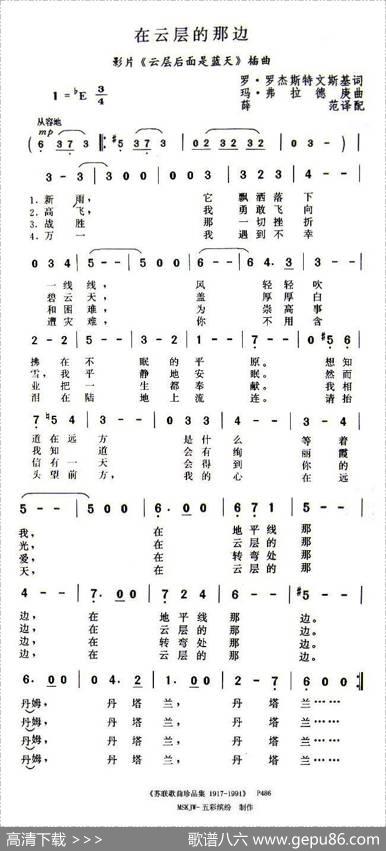 在云层的那边
影片《云层后面是蓝天》插曲
罗·罗杰斯特文斯基词
1=♭E 3/4
玛·弗拉德庚曲
薛范译配
从容地
mp
(6 37 3 | #5 37 3 :||: 500 | 500 | 500) | 033 |
3 - 3 | 3 - - | 3 - - | 0 3 3 | 3 2 1 | 2 1 2 |
1.新雨, 它飘洒落下
2.高飞, 我勇敢飞向
3.战胜 那一切挫折
4.万一 我遇到不幸
0 3 4 | 5 - - | 5 0 0 | 6 - - | 6 4. 3 | 3 - - |
一线线, 风轻轻吹
碧云天, 盖厚厚白
和困难, 为崇高事
遭灾难, 你不用含
2 - 2 | 3 4 3 | 3 2 1 | 2 0 1 | 7 - - | 0 #5 6 |
拂在不眠的平原。想知
雪,我平静地安眠。然而
业把一生都奉献。我相
泪在陆地上流连。请抬
7 ♮5 4 | 3 - - | 2 - - | 0 3 3 | 3 4 3 | 4 3 4 |
道在远方 是什么等着
我知道 会有绚丽霞
信有一天 会得到你的
头望前方, 我的心在远
5 - - | 5 0 0 | 6. 00 | 6 7 1 | 5 - - |
我, 在地平线那
光, 在云层的那
爱, 在转弯处那
天, 在云层的那
4 - - | 7. 00 | 1. 00 | 7 1 7 | 6 - - | #5 - - |
边, 在地平线那边。
边, 在云层的那边。
边, 在转弯处那边。
边, 在云层的那边。
6. 00 | 04. 2 | 3. 00 | 1. 00 | 2 - 7 | 6 0 0 :||
丹姆, 丹塔兰, 丹塔兰……
丹姆, 丹塔兰, 丹塔兰……
丹姆, 丹塔兰, 丹塔兰……
丹姆, 丹塔兰, 丹塔兰……
《苏联歌曲珍品集 1917-1991》 P486
MSKJW-五彩缤纷 制作
高清下载 >>> 歌谱八六 www.gepu86.com